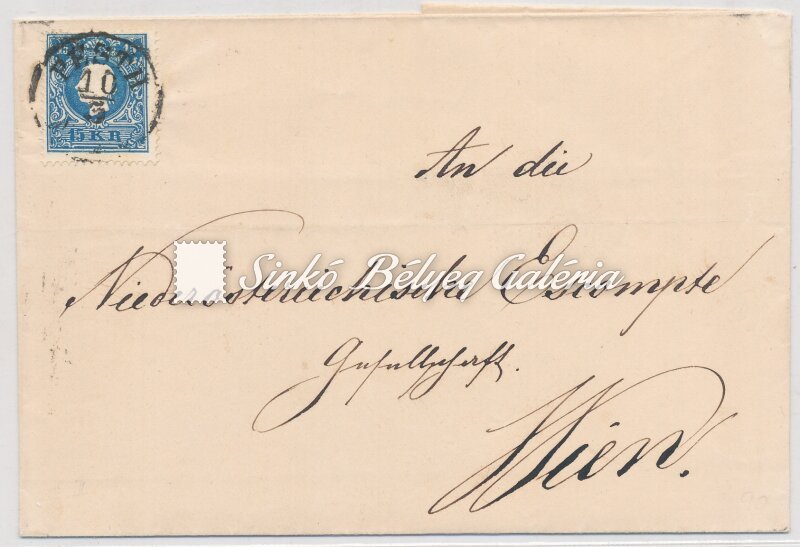 PESTH
10
3
15 KR
An die
Sinkó Bélyeg Galéria
Niederösterreichische Escompte
Gesellschaft.
Wien.